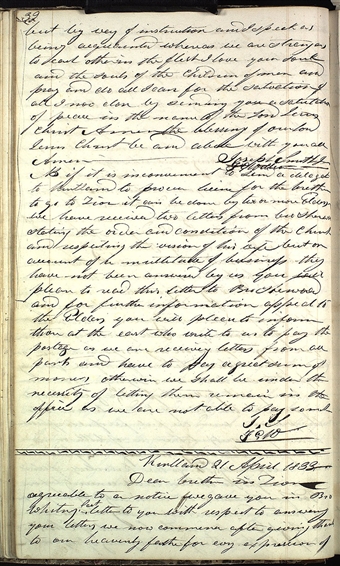 32
but by way of instruction and I speak as
being acquainted whereas we are strangers
to each other in the flesh I love your soul
and the souls of the children of men and
pray and do all I can for the salvation of
all I now close by sending you a salutation
of peace in the name of the Lord Jesus
Christ Amen the blessing of our Lord
Jesus Christ be and abide with you all
Amen Joseph Smith Jr
As if it is inconvenient to send a delegate
to Kirtland to procure
to go to Zion it can be done by two or more Elders
we have received two letters from
stating the order and condition of the Church
and respecting the vision of his but on
account of a multitude of business they
have not been answered by us you
please to read this letter to
and for further information appeal to
the Elders you will please to inform
them at the east who write to us to pay the
postage as we are receiving letters from all
parts and have to pay a great sum of
money otherwise we shall be under the
necessity of letting them remain in the
office as we are not able to pay
J. S.
F G W
Kirtland 21 April 1833
Dear breth in Zion
agreeable to a notice we gave you in Bro
letter to you with respect to answering
your letters we now commence after giving thanks
to our heavenly father for every expression of